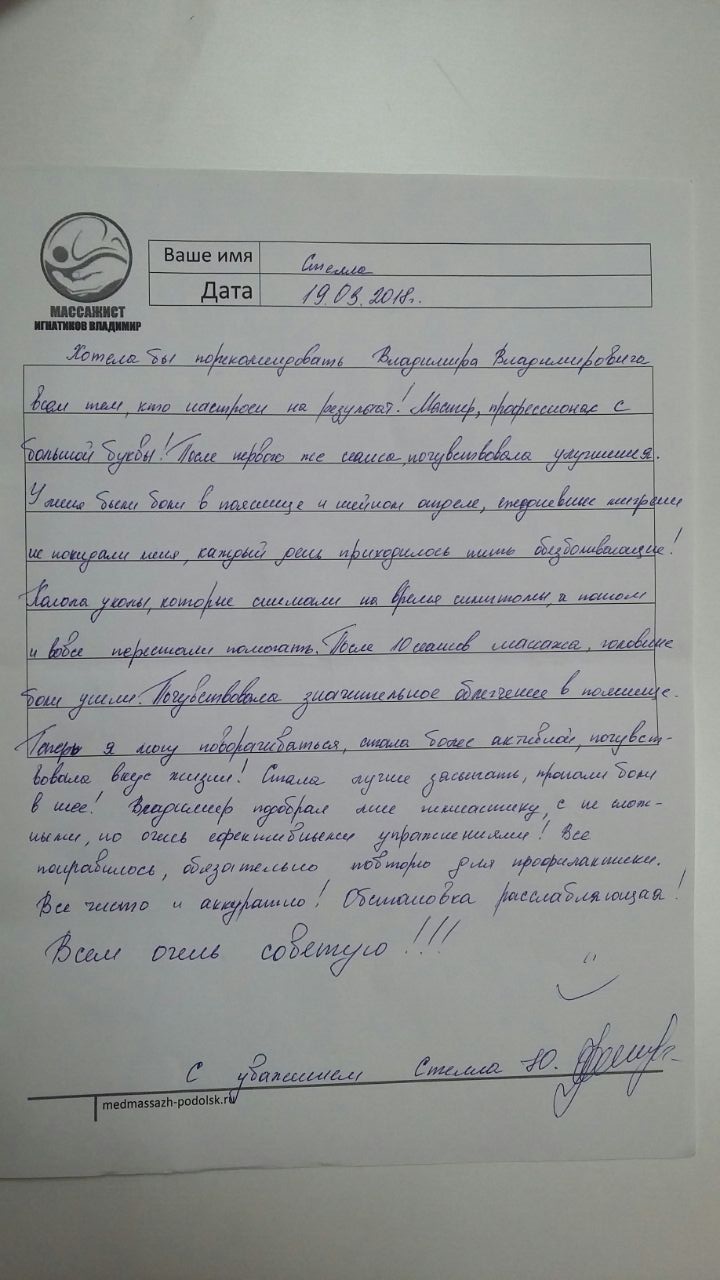 МАССАЖИСТ
ИГНАТИКОВ ВЛАДИМИР
Ваше имя Стелла
Дата 19.03.2018г.
Хотела бы порекомендовать Владимира Владимировича
всем тем, кто настроен на результат! Мастер, профессионал с
большой буквы! После первого же сеанса, почувствовала улучшения.
У меня были боли в пояснице и шейном отделе, ежедневные мигрени
не покидали меня, каждый день приходилось пить обезболивающие!
Колола уколы, которые снимали на время симптомы, а потом
и вовсе перестали помогать. После 10 сеансов массажа, головные
боли ушли. Почувствовала значительное облегчение в пояснице.
Теперь я могу поворачиваться, стала более активной, почувст-
вовала вкус жизни! Стала лучше засыпать, пропали боли
в шее! Владимир подобрал мне гимнастику, с не слож-
ными, но очень эфективными упражнениями! Все
понравилось, обязательно повторю для профилактики.
Все чисто и аккуратно! Обстановка расслабляющая!
Всем очень советую!!!
С уважением Стелла Ю.
medmassazh-podolsk.ru